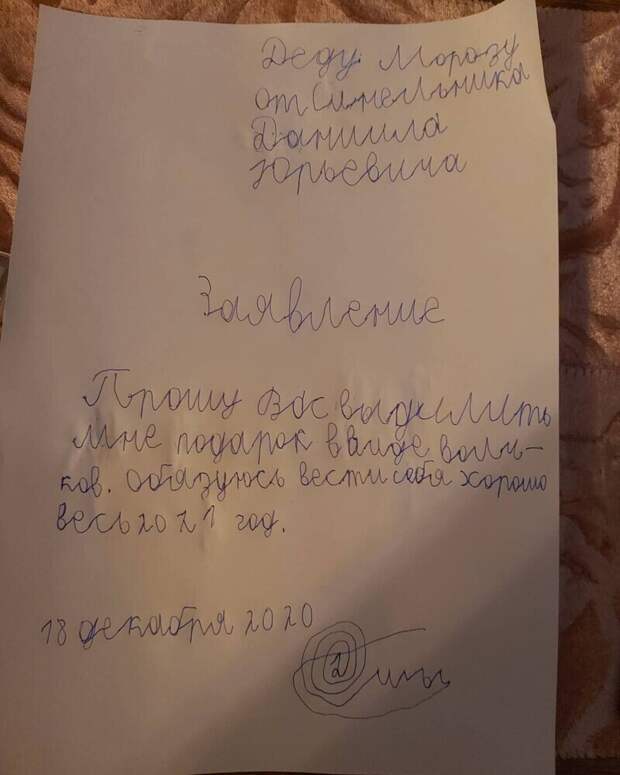 Деду Морозу
от Синельника
Даниила
Юрьевича
Заявление
Прошу Вас выделить
мне подарок в виде волч-
ков. Обязуюсь вести себя хорошо
весь 2021 год.
18 декабря 2020